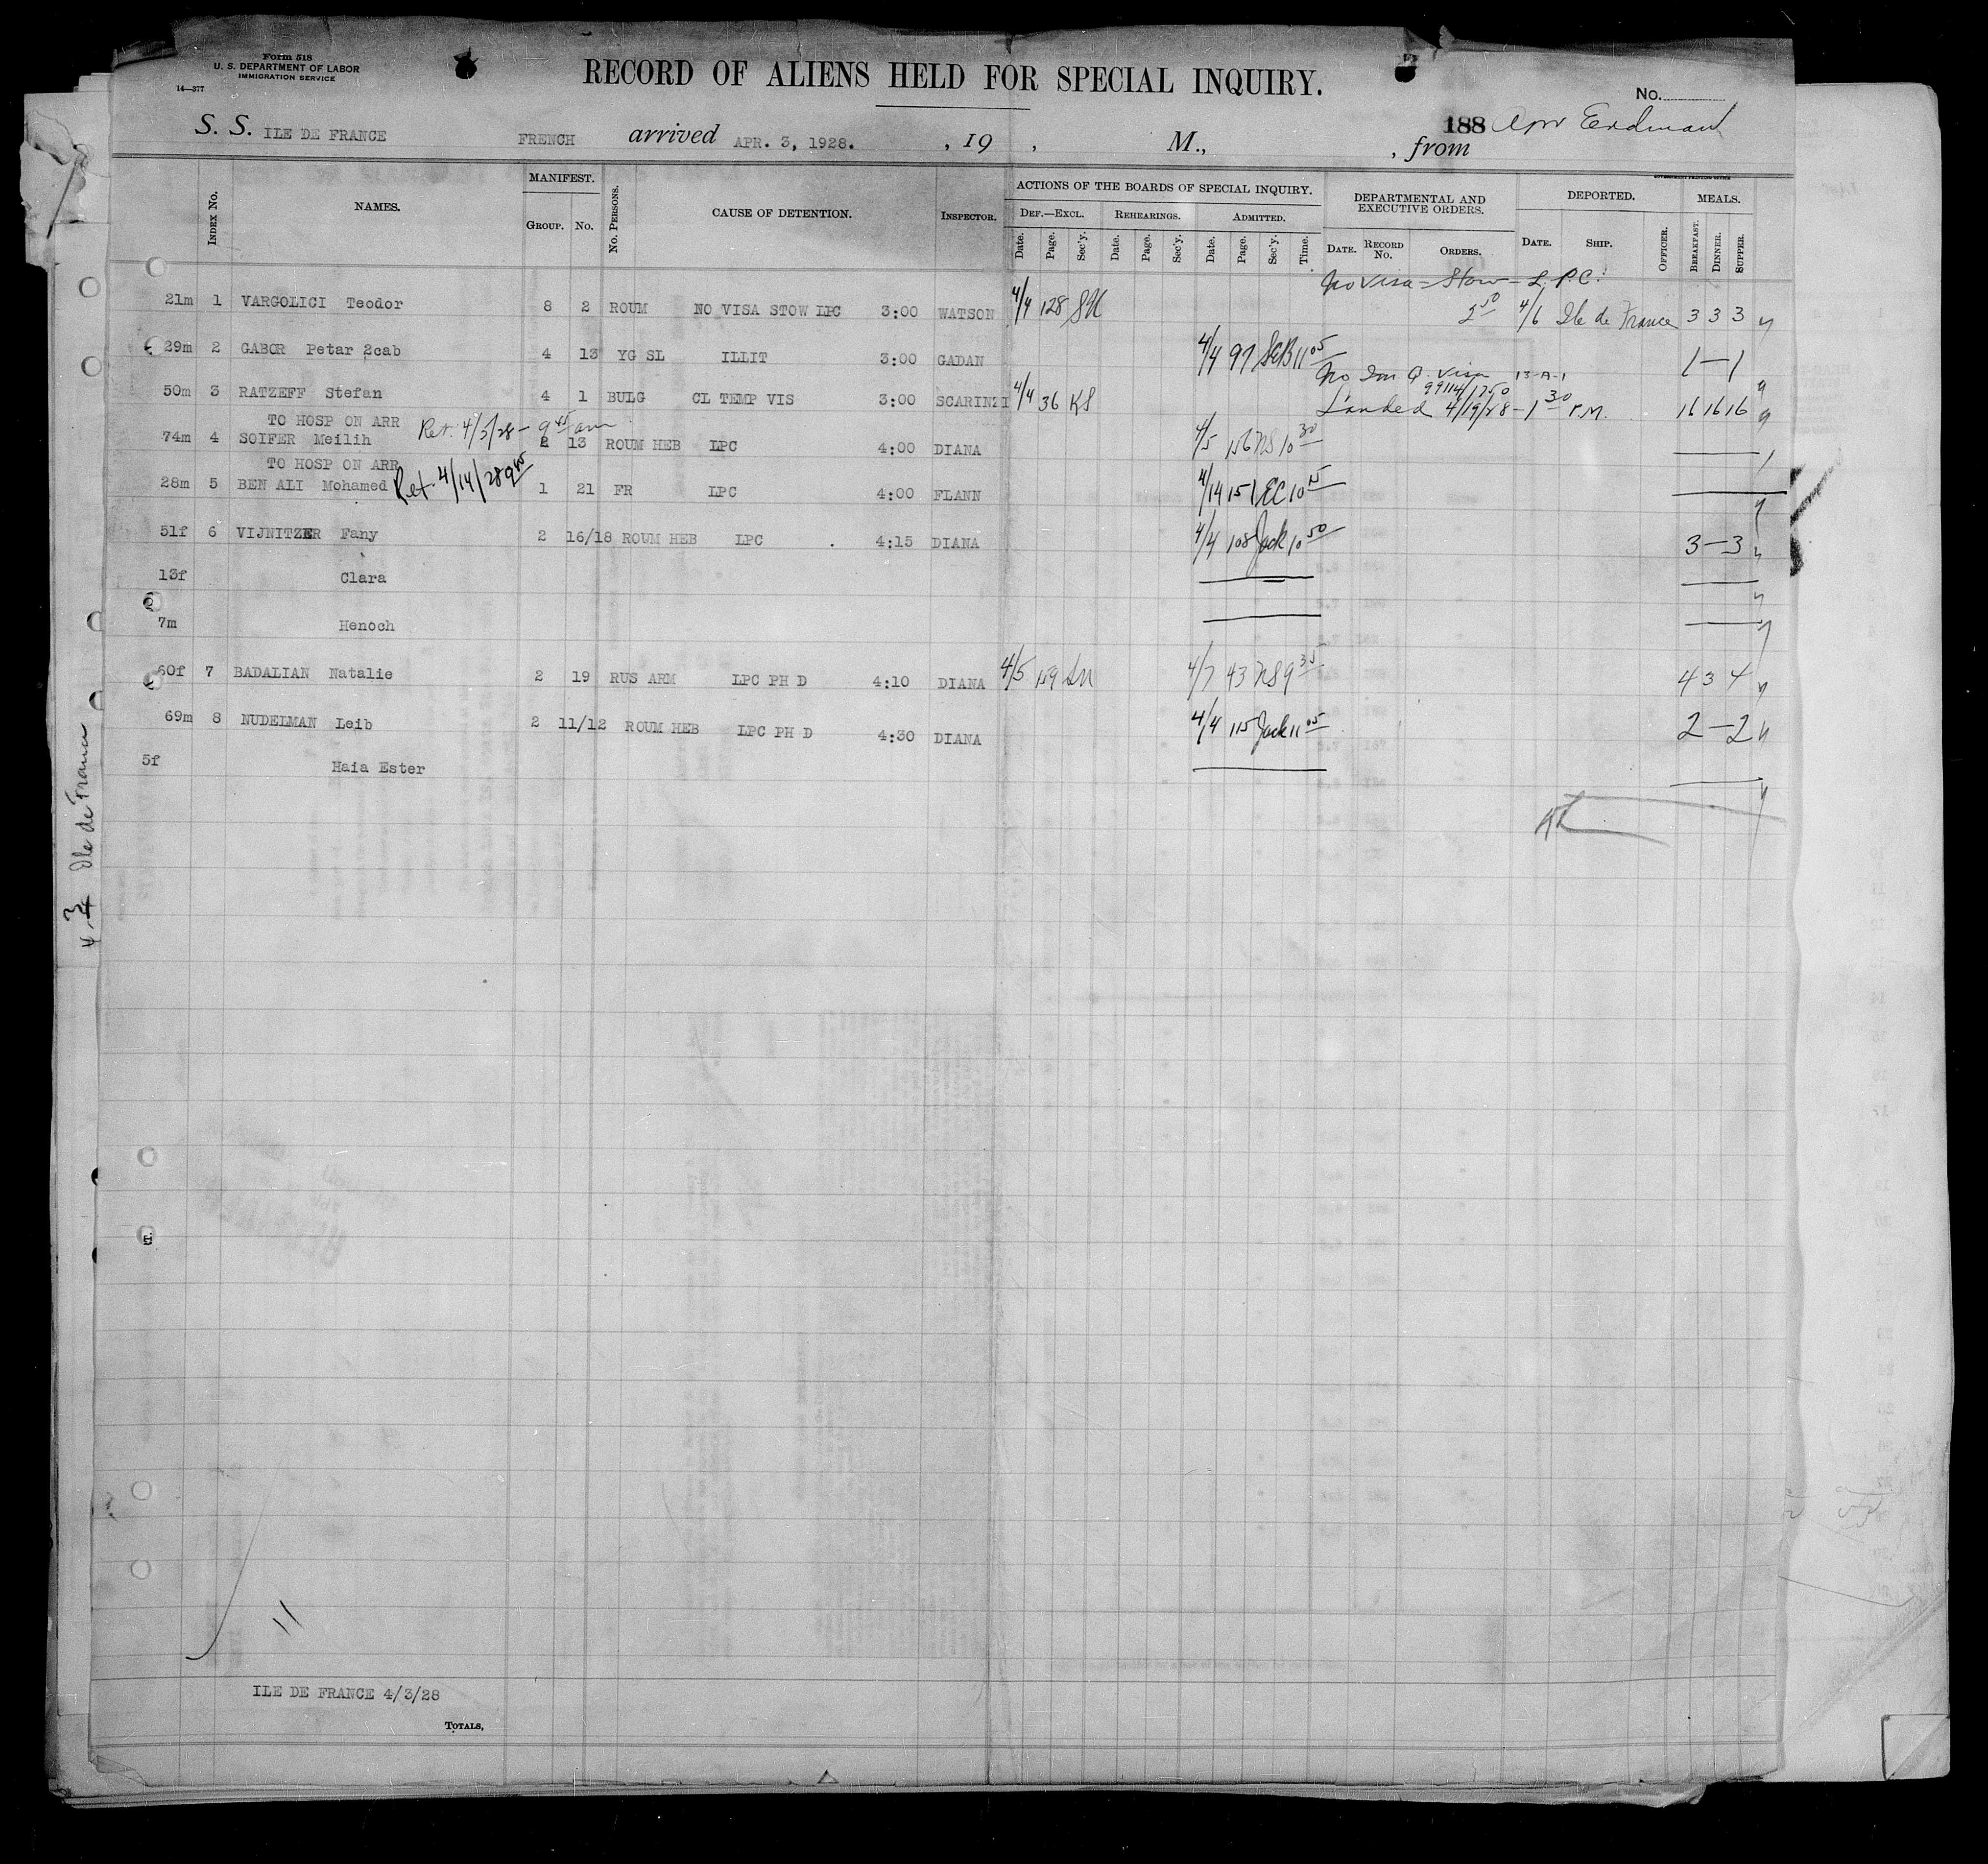 Form 518
U. S. DEPARTMENT OF LABOR
IMMIGRATION SERVICE
14—377
RECORD OF ALIENS HELD FOR SPECIAL INQUIRY.
No.
S. S. ILE DE FRANCE FRENCH arrived APR. 3, 1928. , 19 , M., 188 , from
Index No. NAMES. MANIFEST. GROUP. No. No. Persons. CAUSE OF DETENTION. INSPECTOR. ACTIONS OF THE BOARDS OF SPECIAL INQUIRY. DEPARTMENTAL AND EXECUTIVE ORDERS. DEPORTED. MEALS.
DEF.—EXCL. REHEARINGS. ADMITTED.
Date. Page. Sec'y. Date. Page. Sec'y. Date. Page. Sec'y. Time. DATE. RECORD No. ORDERS. DATE. SHIP. OFFICER. BREAKFAST. DINNER. SUPPER.
No Visa - Stow - L.P.C.
21m 1 VARGOLICI Teodor 8 2 ROUM NO VISA STOW LPC 3:00 WATSON 4/4 128 4/6 Ile de France 3 3 3
29m 2 GABOR Petar 2cab 4 13 YG SL ILLIT 3:00 GADAN 4/4 97 11 05 1 — 1
No Im Q. Visa 13-A-1
99114/1750
50m 3 RATZEFF Stefan 4 1 BULG CL TEMP VIS 3:00 SCARINZI 4/4 36 KS Landed 4/19/28 - 1 30 P.M. 16 16 16
TO HOSP ON ARR Ret. 4/5/28 - 9 45 am
74m 4 SOIFER Meilih 2 13 ROUM HEB LPC 4:00 DIANA 4/5 156 NS 10 30
TO HOSP ON ARR Ret. 4/14/28 9 45
28m 5 BEN ALI Mohamed 1 21 FR LPC 4:00 FLANN 4/14 151 EC 10 15
51f 6 VIJNITZER Fany 2 16/18 ROUM HEB LPC 4:15 DIANA 4/4 108 Jack 10 50 3 — 3
13f Clara
7m Henoch
60f 7 BADALIAN Natalie 2 19 RUS ARM LPC PH D 4:10 DIANA 4/5 159 4/7 43 NS 9 35 4 3 4
69m 8 NUDELMAN Leib 2 11/12 ROUM HEB LPC PH D 4:30 DIANA 4/4 115 Jack 11 05 2 — 2
5f Haia Ester
Ile de France
11
ILE DE FRANCE 4/3/28
TOTALS,